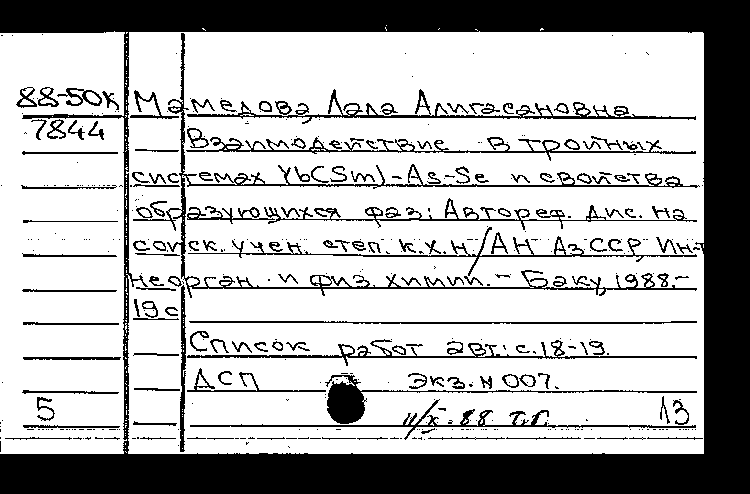 88-50К Мамедова, Лала Алигасановна
7844 Взаимодействие в тройных
системах Yb(Sm)-As-Se и свойства
образующихся фаз: Автореф. дис. на
соиск. учен. степ. к.х.н./АН АзССР, Ин-т
неорган. и физ. химии. - Баку, 1988.-
19 с
Список работ авт.: с.18-19.
ДСП Экз. N 007.
5 88 13